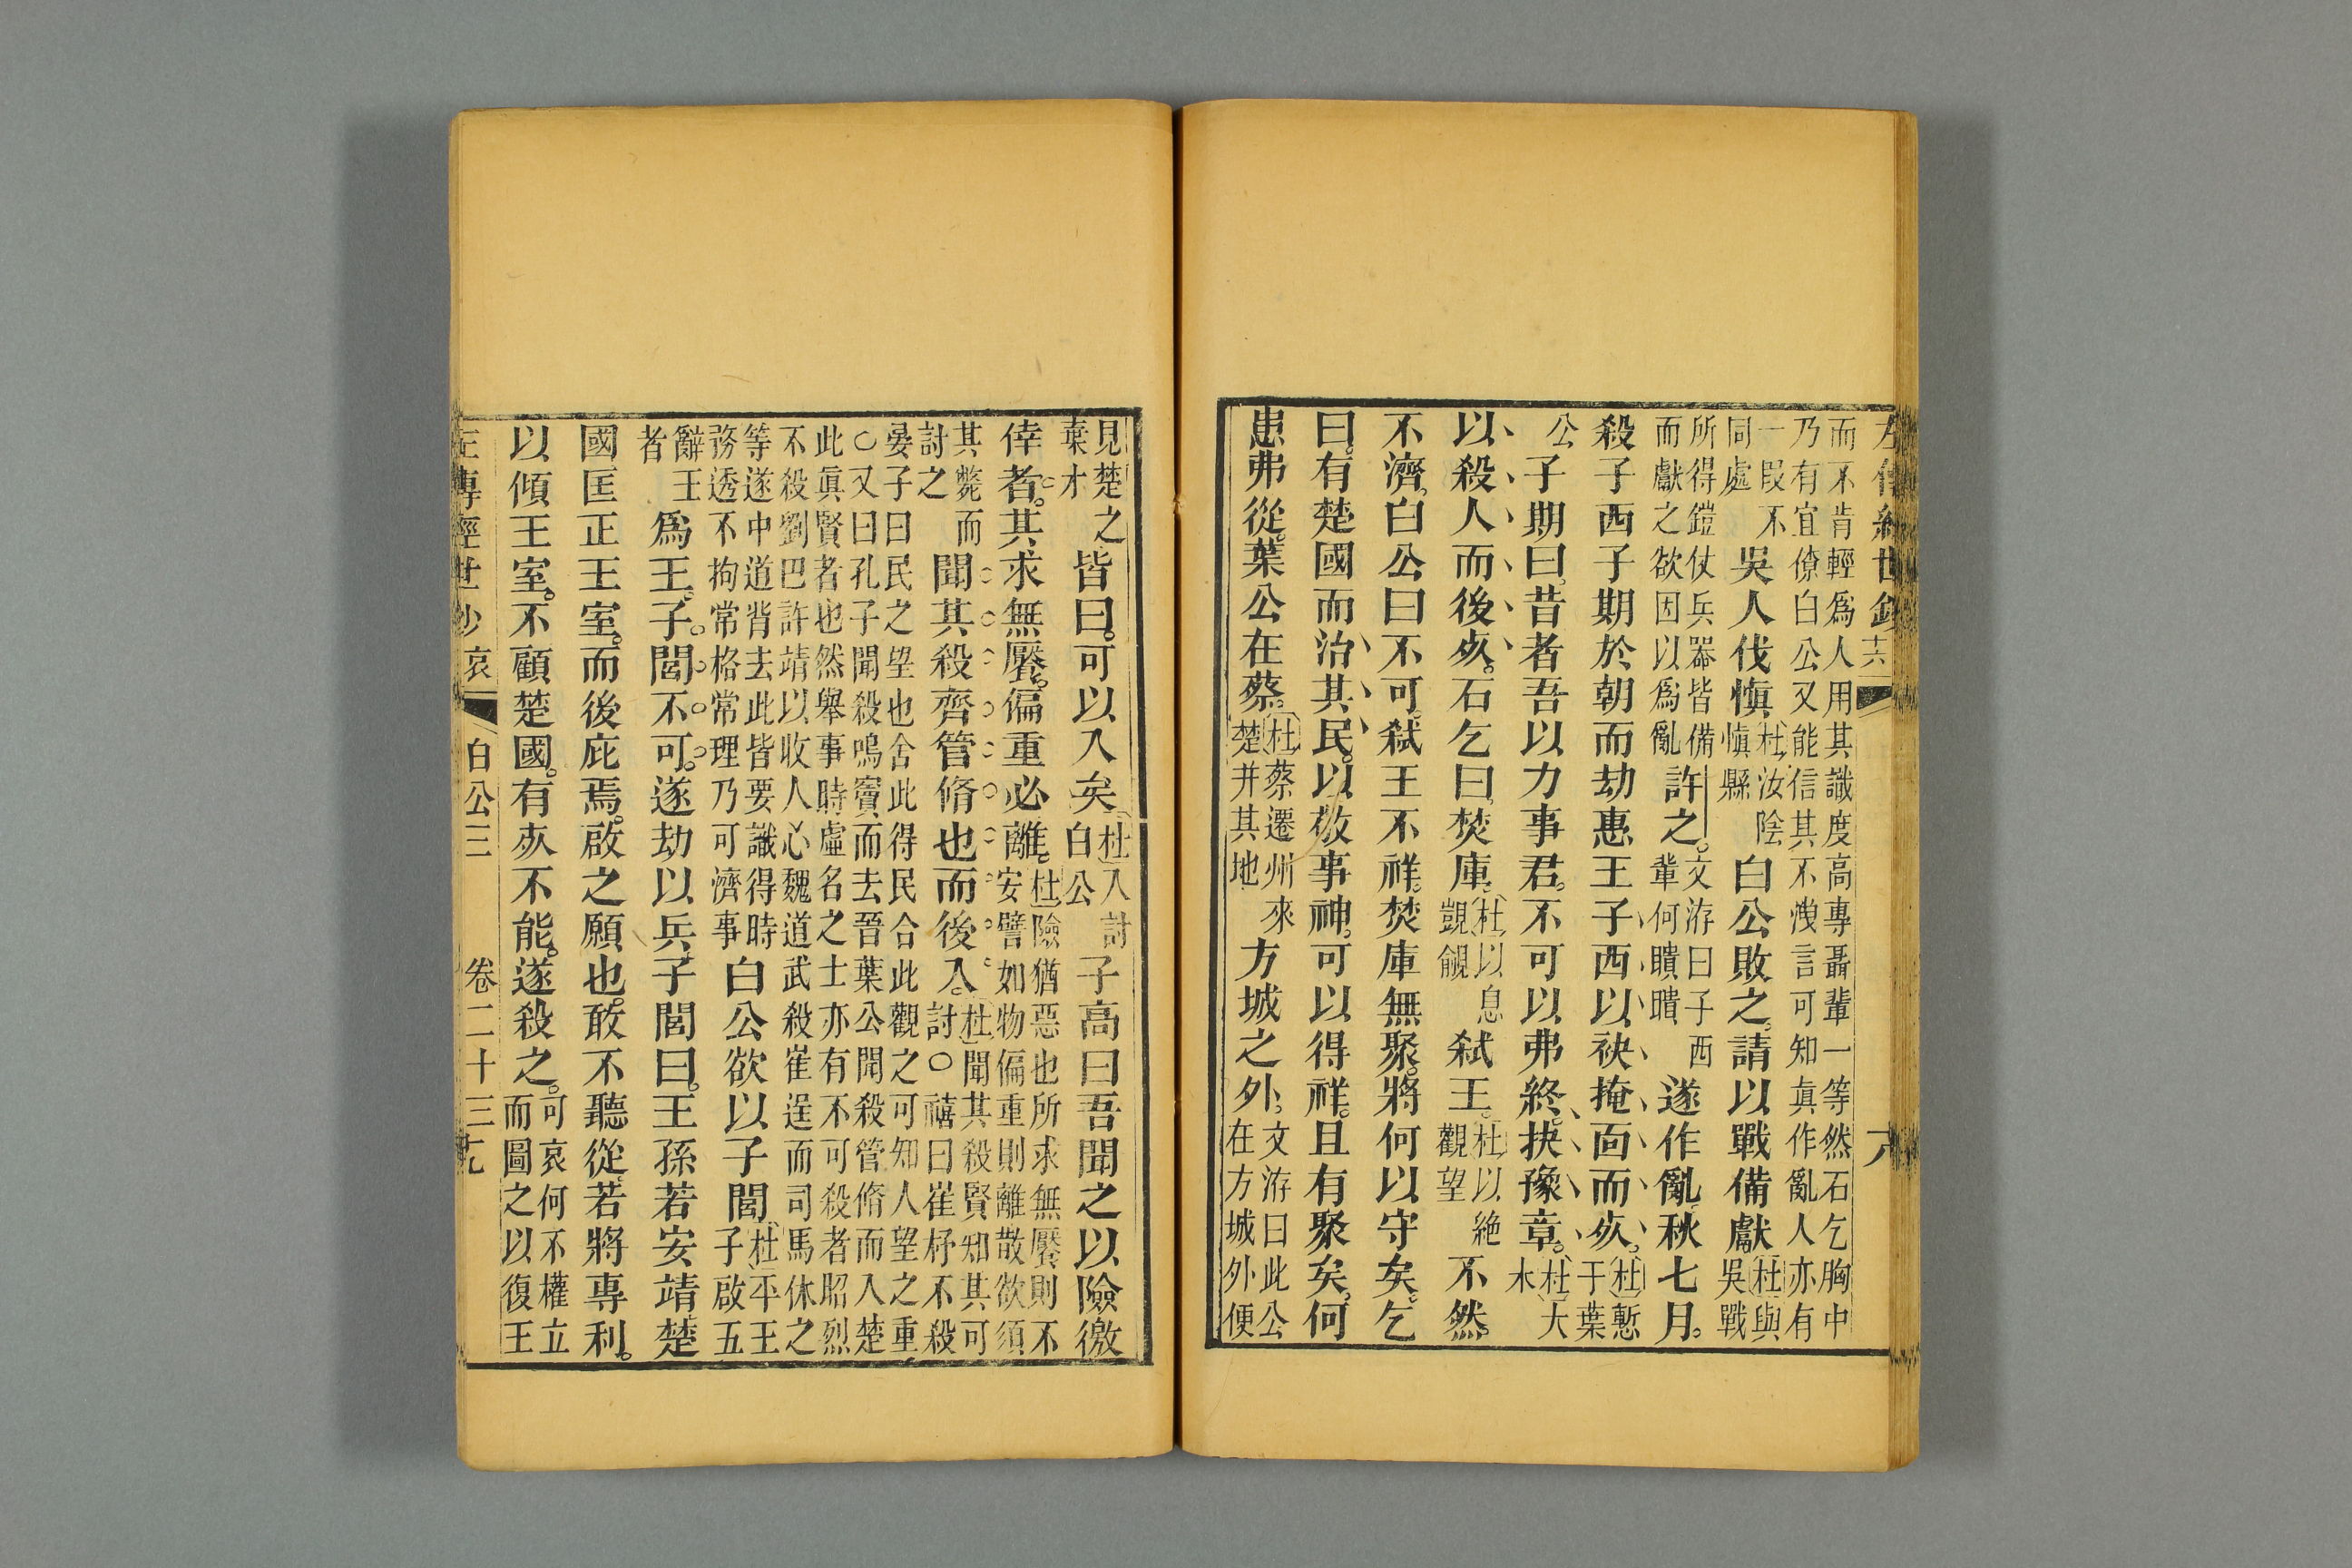 而不肯輕為人用其識度高專聶輩一等然石乞胸中
乃有宜僚白公又能信其不洩言可知真作亂人亦有
一段不同處吳人伐慎杜汝陰慎縣白公敗之請以戰備獻杜與吳戰
所得鎧仗兵器皆備而獻之欲因以為亂許之文游曰子西輩何瞶瞶遂作亂秋七月
殺子西子期於朝而劫惠王子西以袂掩面而死杜慙于葉
公子期曰昔者吾以力事君不可以弗終抉豫章杜大木
以殺人而後死石乞曰焚庫杜以息覬覦弒王杜以絶觀望不然
不濟白公曰不可弒王不祥焚庫無聚將何以守矣乞
曰有楚國而治其民以敬事神可以得祥且有聚矣何
患弗從葉公在蔡杜蔡遷州來楚并其地方城之外文游曰此公在方城外便
見楚之葉才皆曰可以入矣杜入討白公子高曰吾聞之以險徼
倖者其求無饜偏重必離杜險猶惡也所求無饜則不安譬如物偏重則離散欲須
其斃而討之聞其殺齊管脩也而後入杜聞其殺賢知其可討○禧曰崔杼不殺
晏子曰民之望也舍此得民合此觀之可知人望之重
○又曰孔子聞殺鳴竇而去晉葉公聞殺管脩而入楚
此真賢者也然舉事時虛名之士亦有不可殺者昭烈
不殺劉巴許靖以收人心魏道武殺崔逞而司馬休之
等遂中道背去此皆要識得時務透不拘常格常理乃可濟事白公欲以子閭杜平王子啟五
辭王者為王子閭不可遂劫以兵子閭曰王孫若安靖楚
國匡正王室而後庇焉啟之願也敢不聽從若將專利
以傾王室不顧楚國有死不能遂殺之可哀何不權立而圖之以復王
左傳經世鈔 哀 白公三 卷二十三